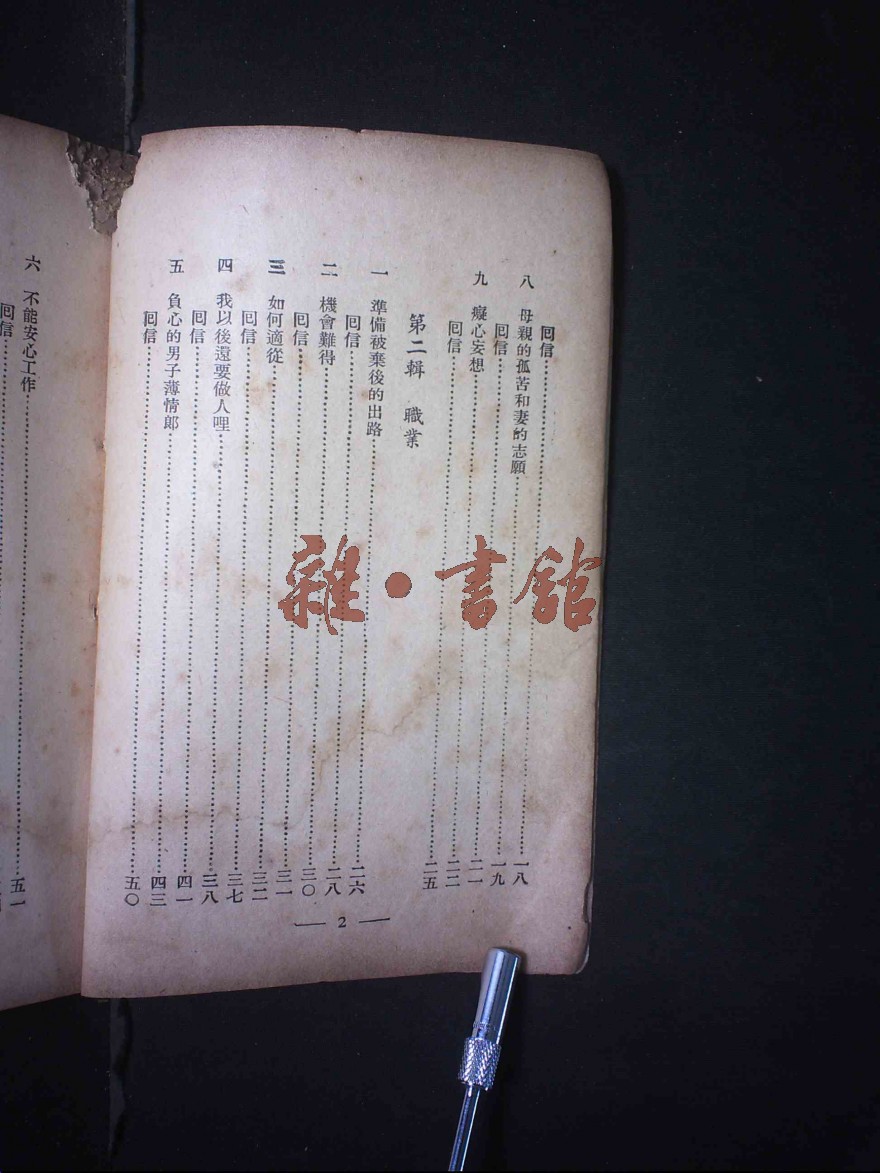 囘信……一八
八 母親的孤苦和妻的志願……一九
囘信……二一
九 癡心妄想……二二
囘信……二五
第二輯 職業
一 準備被棄後的出路……二六
囘信……二八
二 機會難得……三〇
囘信……三一
三 如何適從……三二
囘信……三七
四 我以後還要做人哩……三八
囘信……四一
五 負心的男子薄情郎……四三
囘信……五〇
— 2 —
六 不能安心工作……五一
囘信……
雜·書館